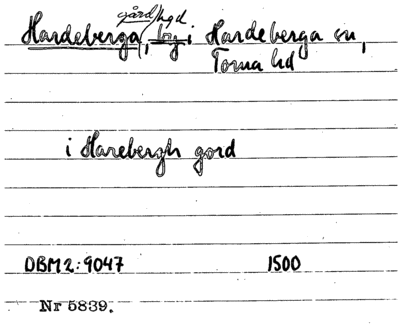 gård/hgd
Hardeberga, by i Hardeberga sn,
Torna hd
i Harebergh gord
DBM 2:9047 1500
Nr 5839.